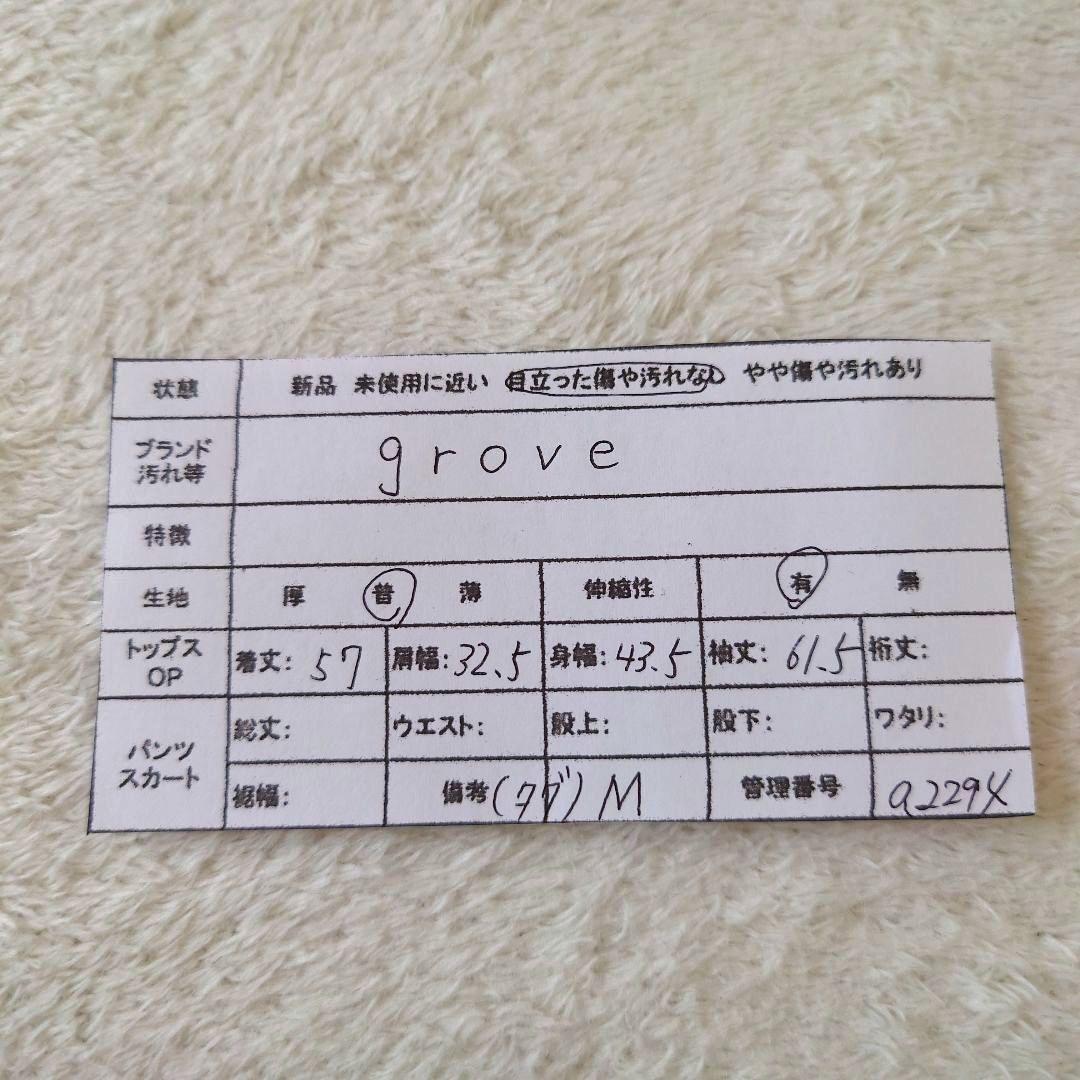 状態 新品 未使用に近い 目立った傷や汚れなし やや傷や汚れあり
ブランド
汚れ等 grove
特徴
生地 厚 普 薄 伸縮性 有 無
トップス
OP 着丈: 57 肩幅: 32.5 身幅: 43.5 袖丈: 61.5 裄丈:
パンツ
スカート 総丈: ウエスト: 股上: 股下: ワタリ:
裾幅: 備考 (タグ) M 管理番号 a2294